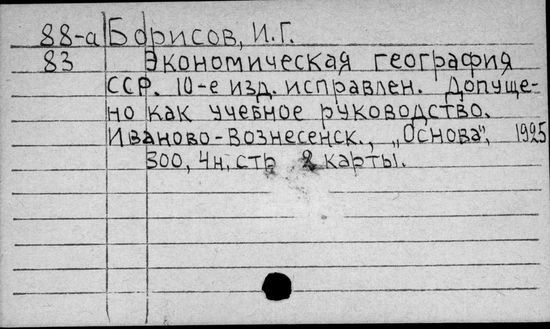 88-а Борисов, И.Г.
83 Экономическая география
ССР. 10-е изд. исправлен. Допуще-
но как учебное руководство.
Иваново-Вознесенск., „Основа", 1925
300, 4н, стр 2 карты.